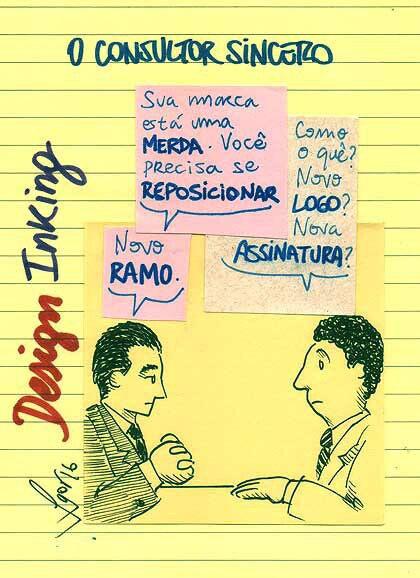 O CONSULTOR SINCERO
Sua marca
está uma
MERDA. Você
precisa se
REPOSICIONAR
Como
o quê?
Novo
LOGO?
Nova
ASSINATURA?
Novo
RAMO.
Design Inking